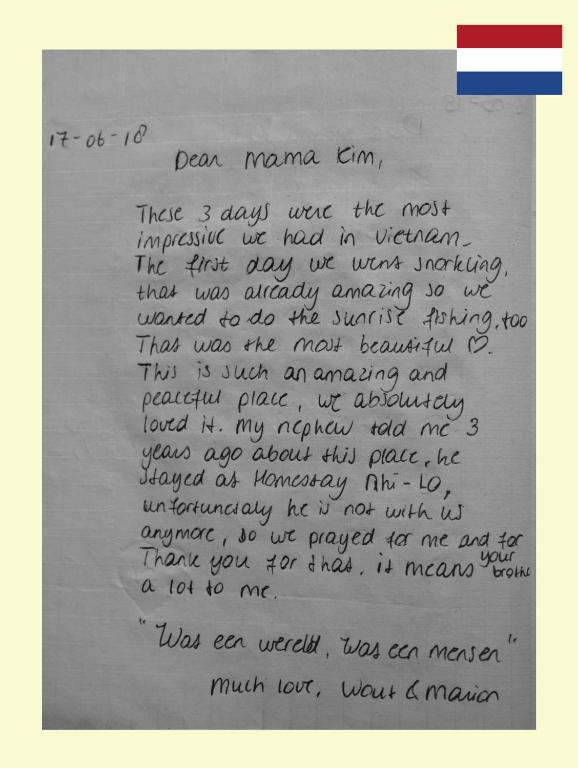 17-06-18
Dear Mama Kim,
These 3 days were the most
impressive we had in Vietnam.
The first day we went snorkling,
that was already amazing so we
wanted to do the sunrise fishing, too
That was the most beautiful ♡.
This is such an amazing and
peaceful place, we absolutely
loved it. My nephew told me 3
years ago about this place, he
stayed at Homestay Nhi-Lo,
unfortunataly he is not with us
anymore, so we prayed for me and for
your brothe
Thank you for that, it means
a lot to me.
"Was een wereld, was een mensen"
Much love, Wout & Marion